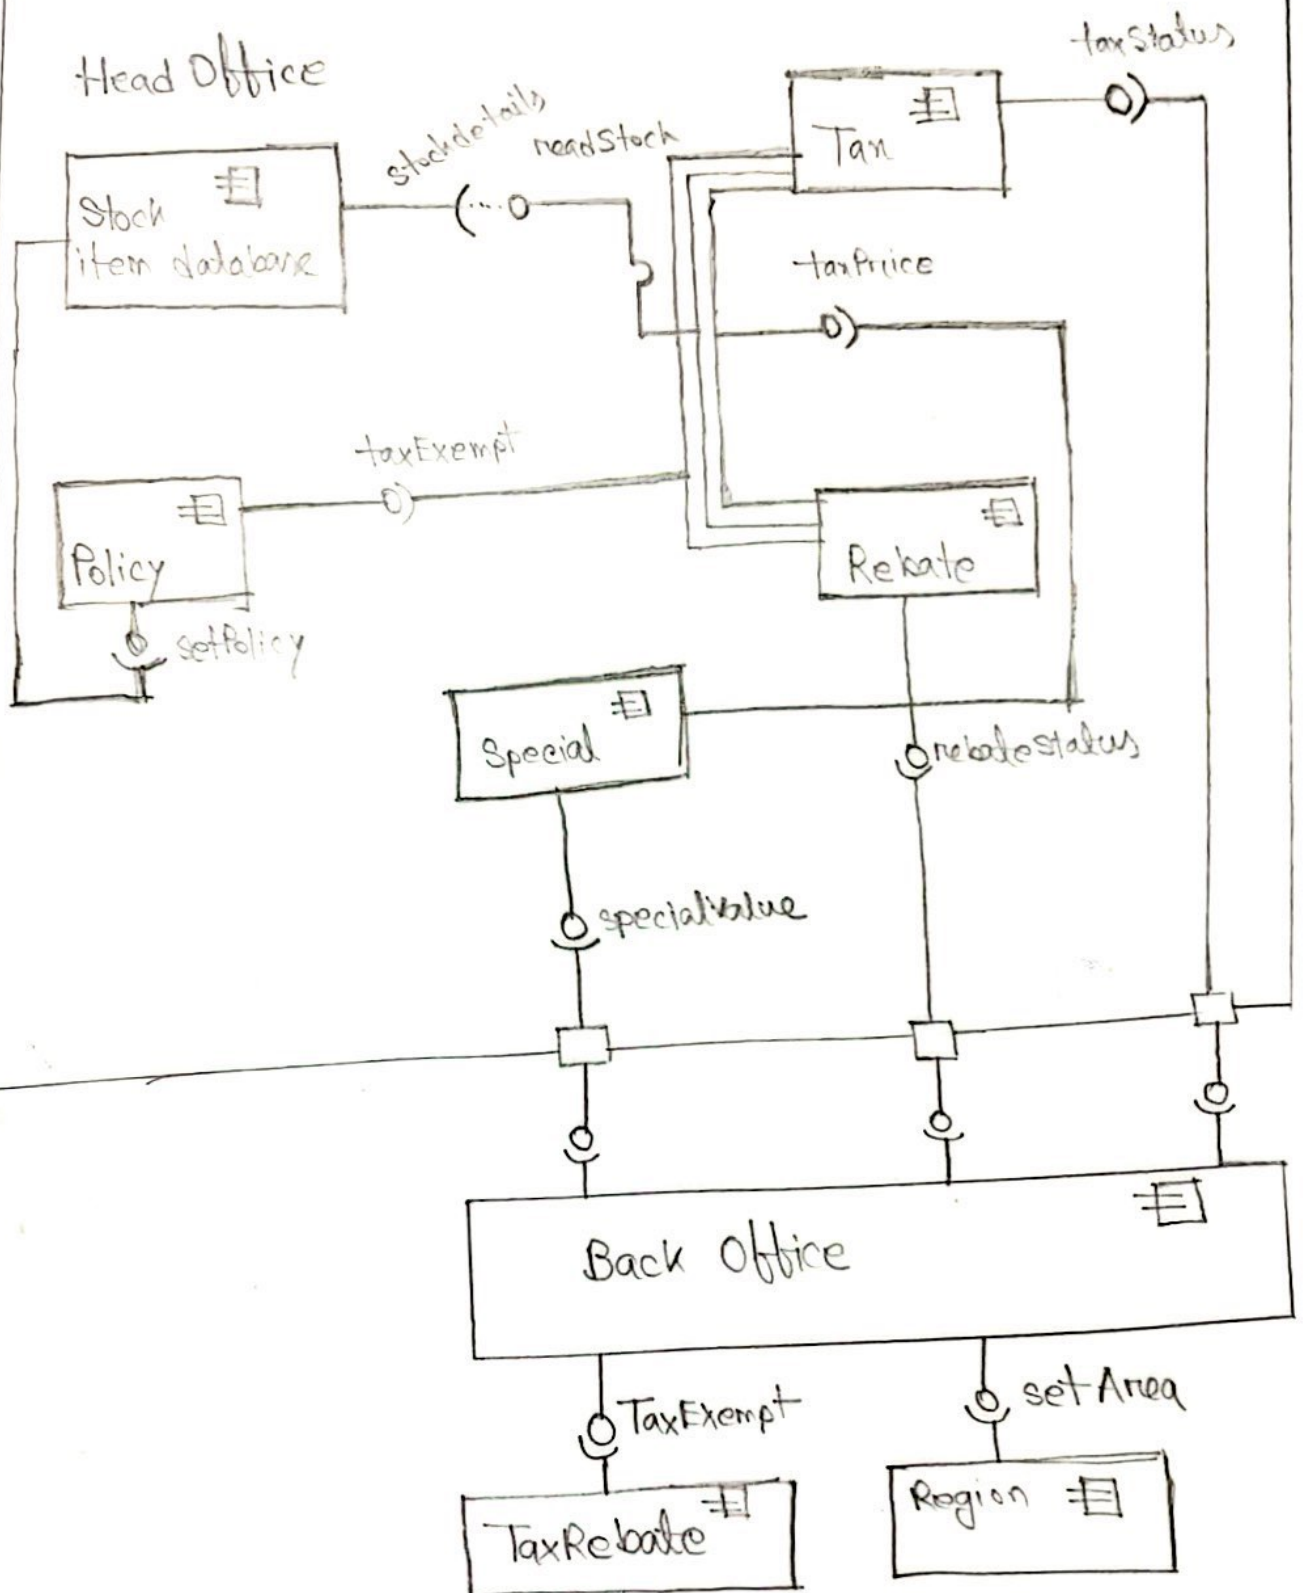 Head Office
taxStatus
stockdetails
readStock
Tax
Stock
item database
taxPriice
taxExempt
Policy
setPolicy
Rebate
Special
rebateStatus
specialValue
Back Office
TaxExempt
setArea
TaxRebate
Region